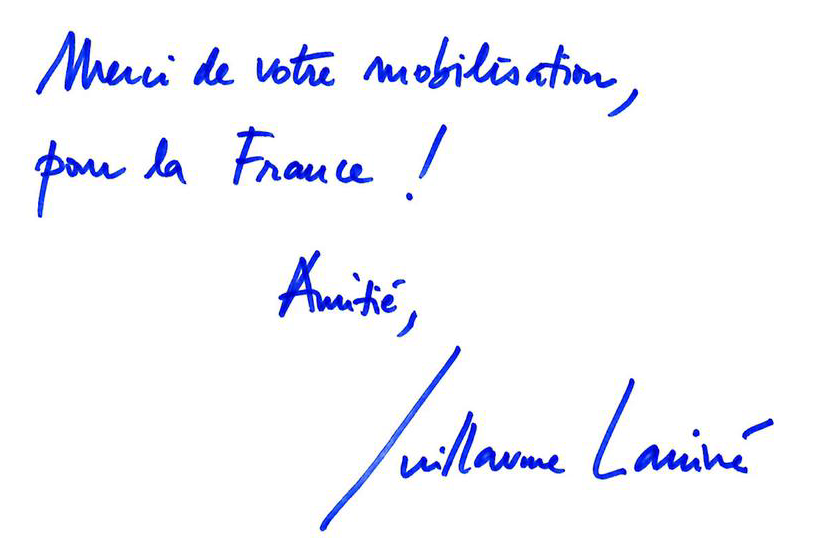 Merci de votre mobilisation,
pour la France !
Amitié,
Guillaume